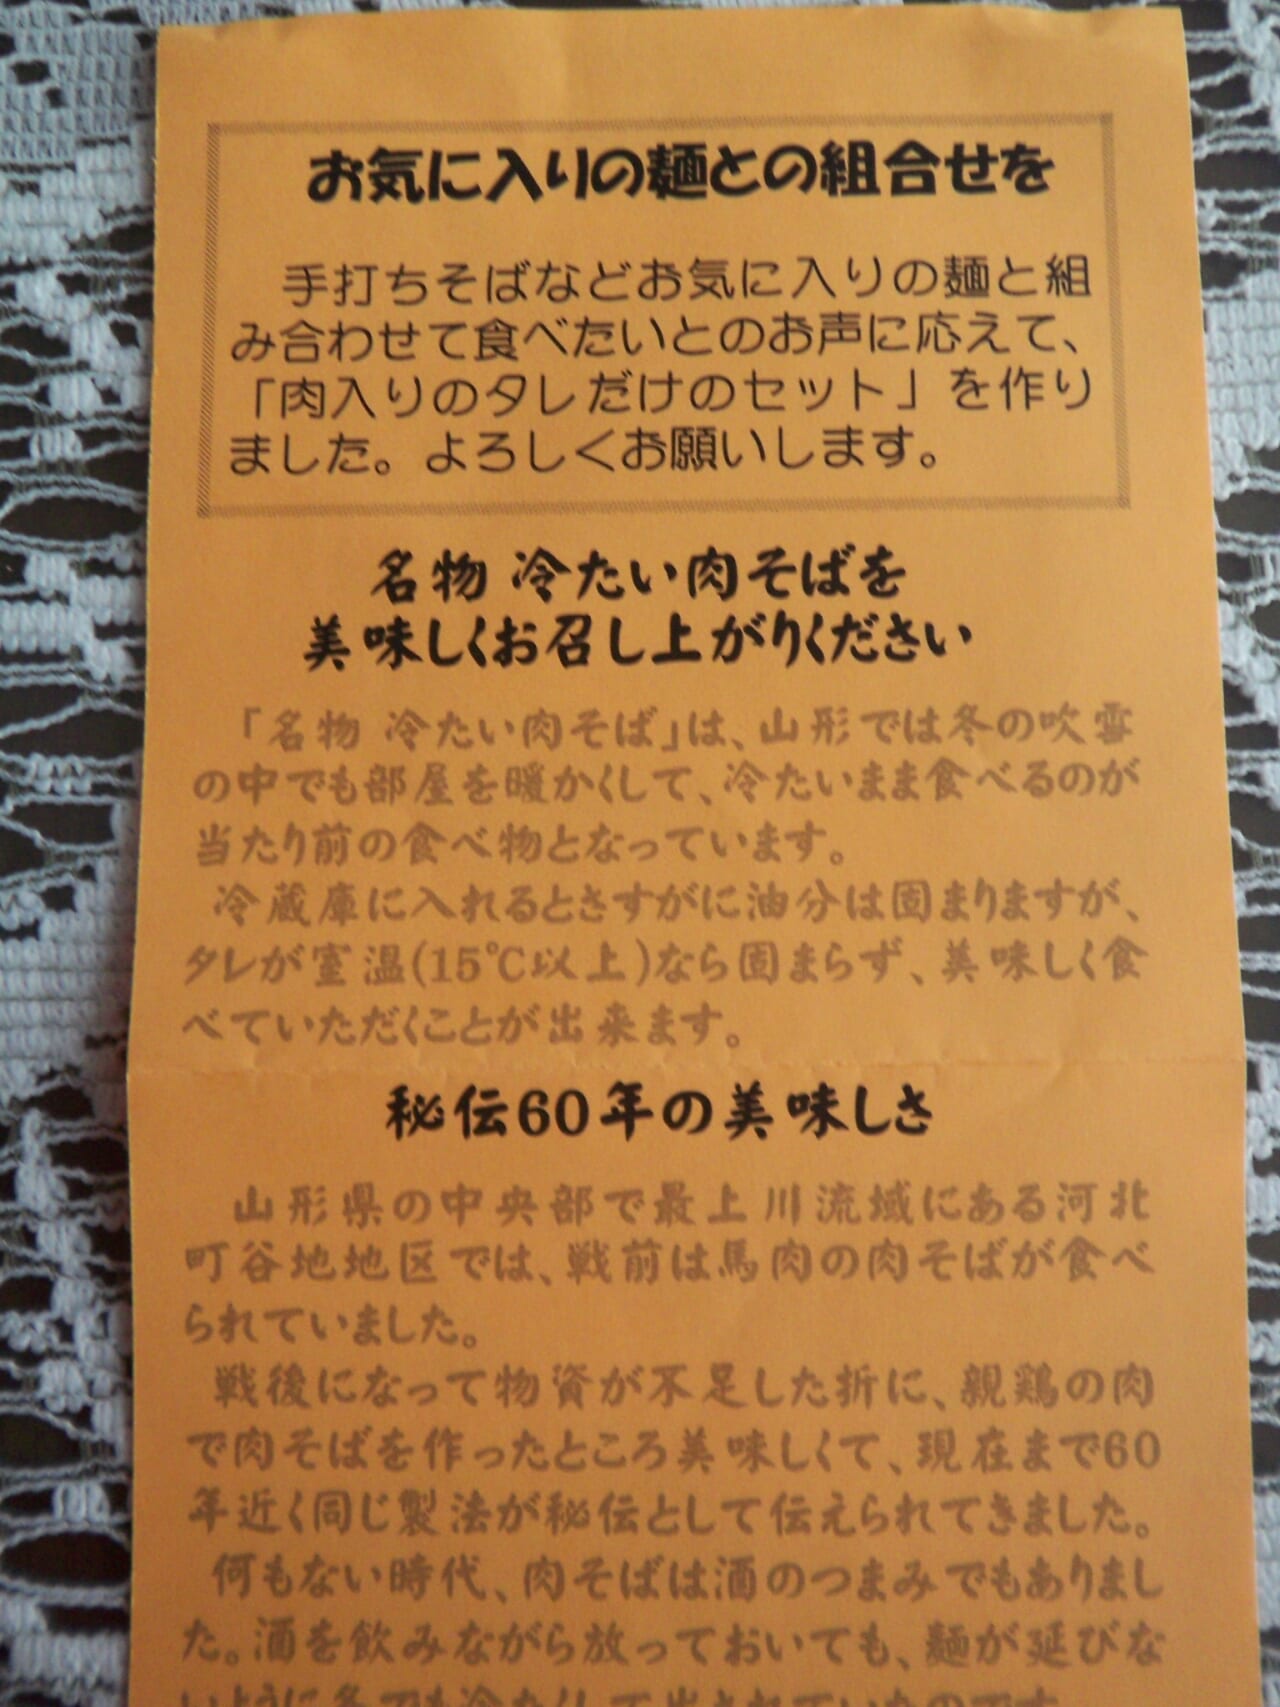 お気に入りの麺との組合せを
手打ちそばなどお気に入りの麺と組
み合わせて食べたいとのお声に応えて、
「肉入りのタレだけのセット」を作り
ました。よろしくお願いします。
名物 冷たい肉そばを
美味しくお召し上がりください
「名物 冷たい肉そば」は、山形では冬の吹雪
の中でも部屋を暖かくして、冷たいまま食べるのが
当たり前の食べ物となっています。
冷蔵庫に入れるとさすがに油分は固まりますが、
タレが室温(15℃以上)なら固まらず、美味しく食
べていただくことが出来ます。
秘伝60年の美味しさ
山形県の中央部で最上川流域にある河北
町谷地地区では、戦前は馬肉の肉そばが食べ
られていました。
戦後になって物資が不足した折に、親鶏の肉
で肉そばを作ったところ美味しくて、現在まで60
年近く同じ製法が秘伝として伝えられてきました。
何もない時代、肉そばは酒のつまみでもありまし
た。酒を飲みながら放っておいても、麺が延びな
いように冬でも冷たくして出されていたのです。